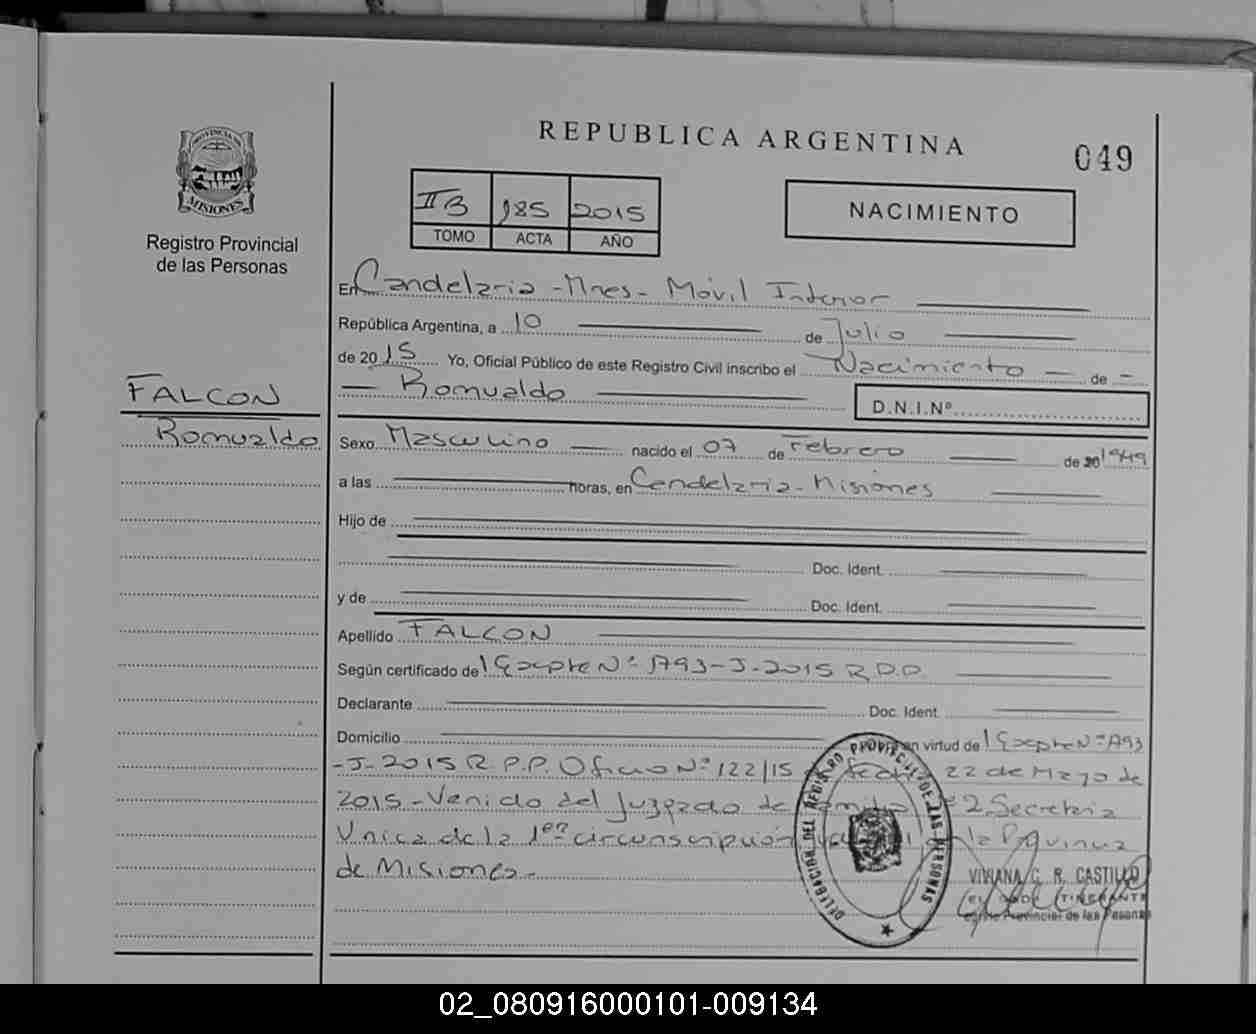 REPUBLICA ARGENTINA
049
PROVINCIA DE
MISIONES
Registro Provincial
de las Personas
II B 185 2015
TOMO ACTA AÑO
NACIMIENTO
En Candelaria - Mnes - Móvil Interior
República Argentina, a 10 de Julio
de 2015 Yo, Oficial Público de este Registro Civil inscribo el Nacimiento - de -
Romualdo
D.N.I.Nº
FALCON
Romualdo
Sexo Masculino nacido el 07 de Febrero de 20 1949
a las horas, en Candelaria - Misiones
Hijo de
Doc. Ident.
y de Doc. Ident.
Apellido FALCON
Según certificado de Nº 1793-J-2015 R.P.P.
Declarante Doc. Ident.
Domicilio en virtud de Nº 1793
-J-2015 R.P.P. Oficio Nº 122/15 fecha 22 de Mayo de
2015 - Venido del Juzgado de Familia 2 Secretaria
Unica de la 1era circunscripción de la Provincia
de Misiones -
DELEGACION DEL REGISTRO PROVINCIAL DE LAS PERSONAS
VIVIANA C. R. CASTILLO
ITINERANTE
Provincial de las Personas
02_080916000101-009134